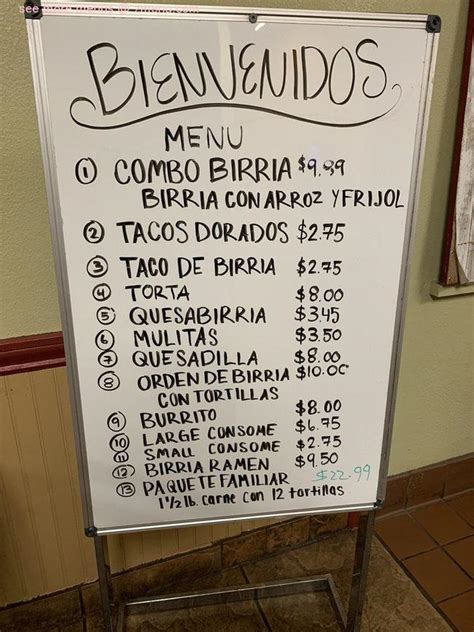 BIENVENIDOS
MENU
① COMBO BIRRIA $9.99
BIRRIA CON ARROZ Y FRIJOL
② TACOS DORADOS $2.75
③ TACO DE BIRRIA $2.75
④ TORTA $8.00
⑤ QUESABIRRIA $3.45
⑥ MULITAS $3.50
⑦ QUESADILLA $8.00
⑧ ORDEN DE BIRRIA $10.00
CON TORTILLAS
⑨ BURRITO $8.00
⑩ LARGE CONSOME $6.75
⑪ SMALL CONSOME $2.75
⑫ BIRRIA RAMEN $9.50
⑬ PAQUETE FAMILIAR $22.99
1 1/2 lb. carne con 12 tortillas